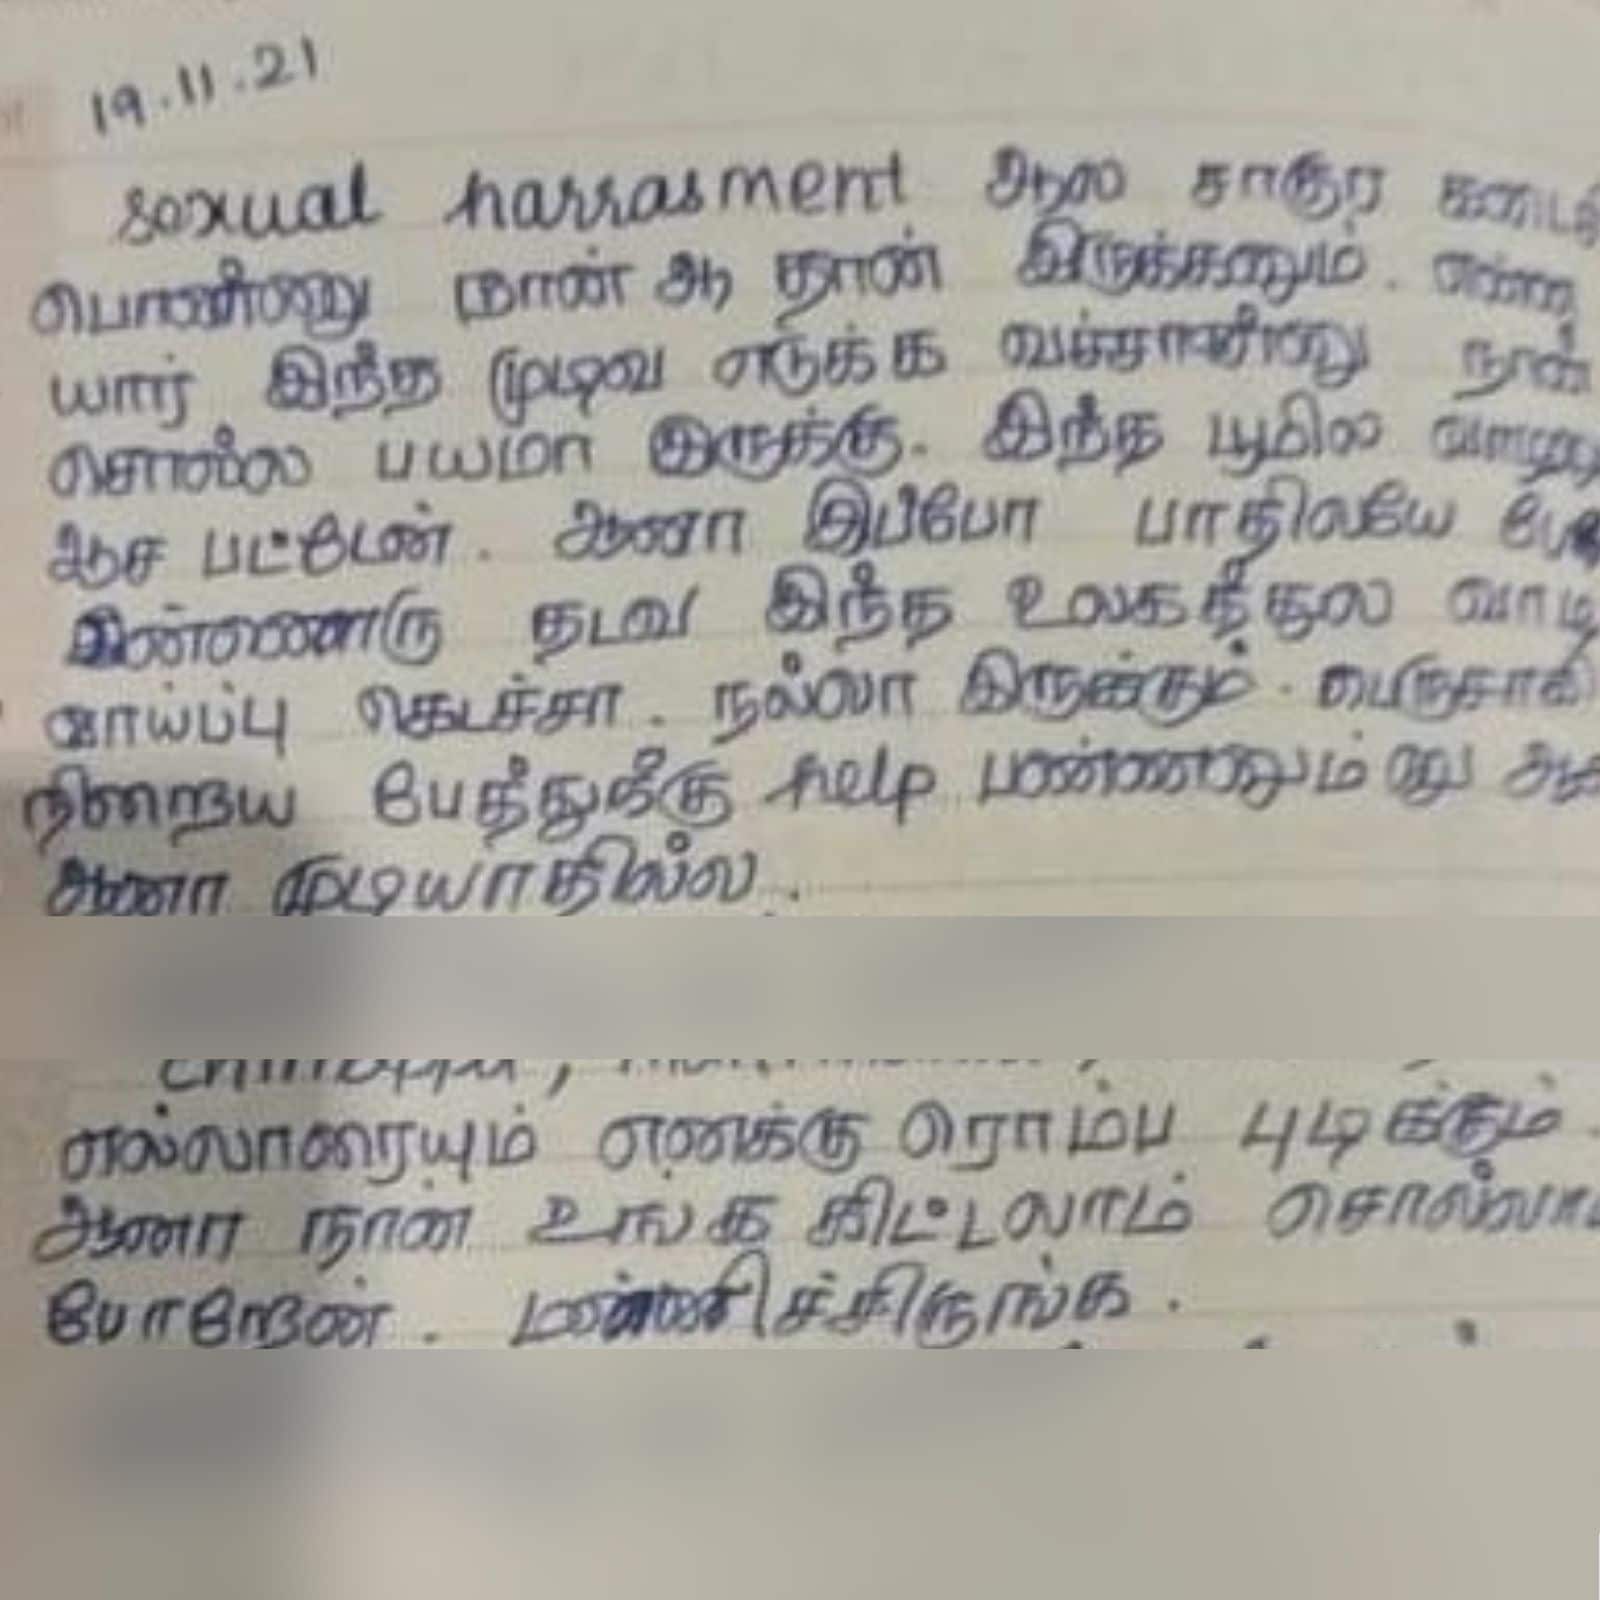 19.11.21
sexual harrasment ஆல சாகுற கடைசி
பொண்ணு நான் ஆ தான் இருக்கனும். என்ன
யார் இந்த முடிவ எடுக்க வச்சான்னு நான்
சொல்ல பயமா இருக்கு. இந்த பூமில வாழனு
ஆச பட்டேன். ஆனா இப்போ பாதிலயே
இன்னொரு தடவ இந்த உலகத்துல
வாய்ப்பு கெடச்சா. நல்லா இருக்கும். பெருசாகி
நிறைய பேத்துக்கு help பண்ணனும் னு ஆச
ஆனா முடியாதில்ல.
எல்லாரையும் எனக்கு ரொம்ப புடிக்கும்.
ஆனா நான் உங்க கிட்டலாம்
போறேன். மன்னிச்சிருங்க.